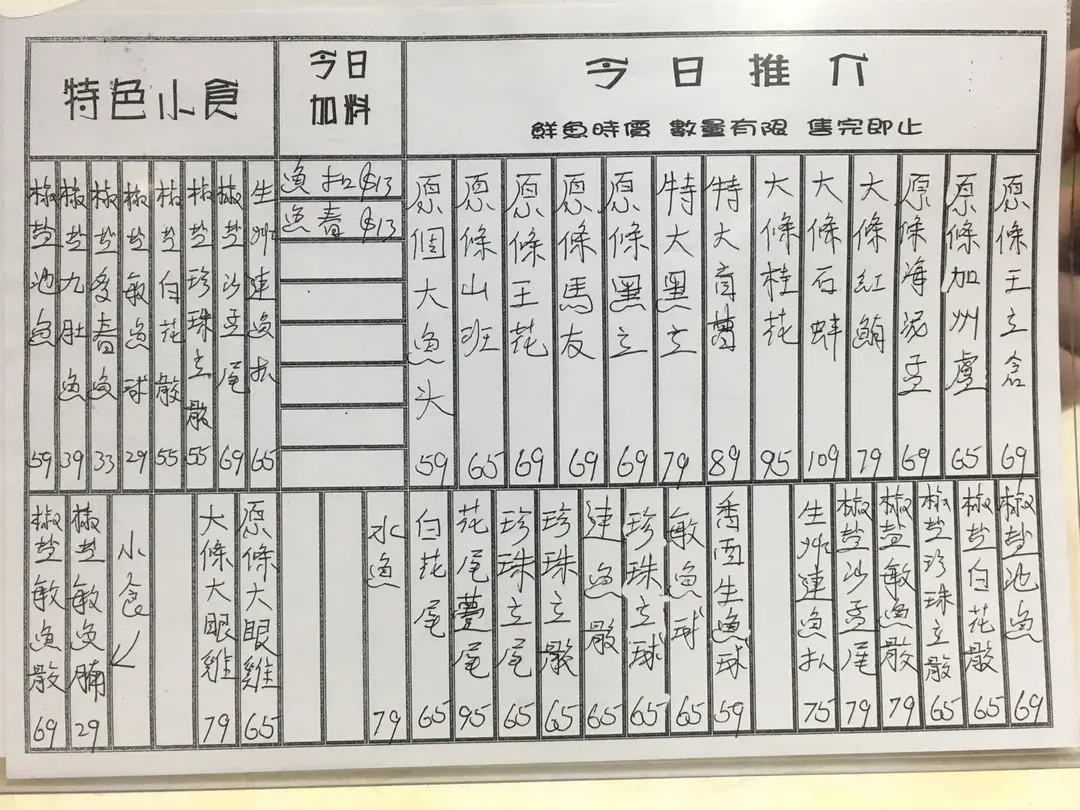 特色小食
今日
加料
今日推介
鮮魚時價 數量有限 售完即止
原條王立倉 69
原條加州盧 65
原條海泥孟 69
大條紅鮋 79
大條石蚌 109
大條桂花 95
特大 89
特大黑立 79
原條黑立 69
原條馬友 69
原條王花 69
原條山班 65
原個大魚头 59
魚扣 $13
魚春 $13
生炸連魚扒 65
椒盐沙孟尾 69
椒盐珍珠立骰 55
椒盐白花骰 55
椒盐敏魚球 29
椒盐多春魚 33
椒盐九肚魚 39
椒盐池魚 59
椒盐池魚 69
椒盐白花骰 65
椒盐珍珠立骰 65
椒盐敏魚骰 79
椒盐沙孟尾 79
生炸連魚扒 75
香西生魚球 59
敏魚球 65
珍珠立球 65
連魚骰 65
珍珠立骰 65
珍珠立尾 65
花尾躉尾 95
白花尾 65
水魚 79
原條大眼雞 65
大條大眼雞 79
小食
椒盐敏魚腩 29
椒盐敏魚骰 69